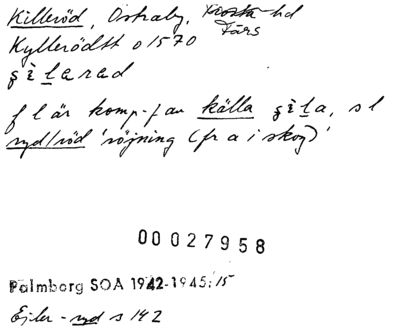 Killeröd, Östraby, Frosta hd
Färs
Kyllerödtt o 1570
şı̀larad
f l är komp.-f av källa şı̀la, s l
ryd/röd 'röjning (fr a i skog)'
00 027958
Palmborg SOA 1942-1945:15
Ejler - ryd s 142